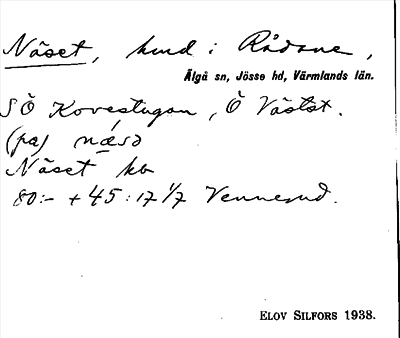 Näset, hmd i Rådane,
Älgå sn, Jösse hd, Värmlands län.
SÖ Kovestugan, Ö Västst.
(pa) næsə
Näset kb
80:- + 45:17 1/7 Vennesud.
ELOV SILFORS 1938.